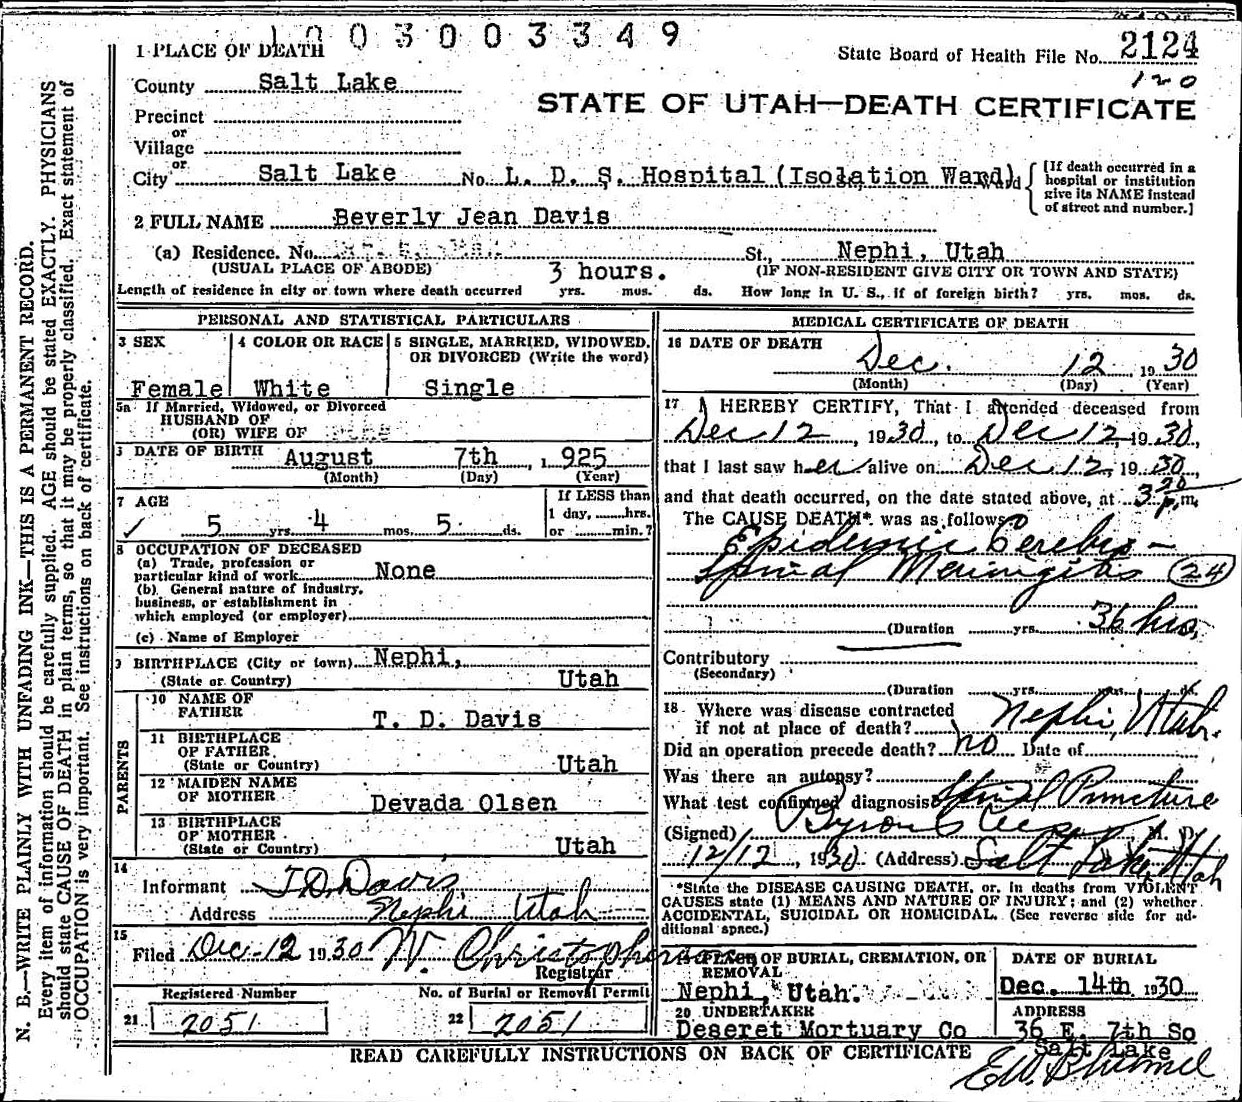 1003003349
State Board of Health File No. 2124
120
1 PLACE OF DEATH
County Salt Lake
STATE OF UTAH—DEATH CERTIFICATE
Precinct
or
Village
or
City Salt Lake No. L. D. S. Hospital (Isolation Ward) Ward
[If death occurred in a hospital or institution give its NAME instead of street and number.]
2 FULL NAME Beverly Jean Davis
(a) Residence. No. St., Nephi, Utah
(USUAL PLACE OF ABODE) 3 hours. (IF NON-RESIDENT GIVE CITY OR TOWN AND STATE)
Length of residence in city or town where death occurred yrs. mos. ds. How long in U. S., if of foreign birth? yrs. mos. ds.
PERSONAL AND STATISTICAL PARTICULARS
3 SEX Female
4 COLOR OR RACE White
5 SINGLE, MARRIED, WIDOWED, OR DIVORCED (Write the word) Single
5a If Married, Widowed, or Divorced
HUSBAND OF
(OR) WIFE OF
6 DATE OF BIRTH August 7th, 1925
(Month) (Day) (Year)
7 AGE 5 yrs. 4 mos. 5 ds.
If LESS than
1 day, hrs.
or min.?
8 OCCUPATION OF DECEASED
(a) Trade, profession or
particular kind of work None
(b) General nature of industry,
business, or establishment in
which employed (or employer)
(c) Name of Employer
9 BIRTHPLACE (City or town) Nephi,
(State or Country) Utah
PARENTS
10 NAME OF
FATHER T. D. Davis
11 BIRTHPLACE
OF FATHER
(State or Country) Utah
12 MAIDEN NAME
OF MOTHER Devada Olsen
13 BIRTHPLACE
OF MOTHER
(State or Country) Utah
14
Informant T.D. Davis
Address Nephi Utah
15
Filed Dec-12 1930 W. Christopherson
Registrar
Registered Number
21 2051
No. of Burial or Removal Permit
22 2051
MEDICAL CERTIFICATE OF DEATH
16 DATE OF DEATH
Dec. 12 1930
(Month) (Day) (Year)
17 I HEREBY CERTIFY, That I attended deceased from
Dec 12, 1930, to Dec 12, 1930,
that I last saw her alive on Dec 12, 1930
and that death occurred, on the date stated above, at 3 20 p.m.
The CAUSE DEATH* was as follows:
Epidemic Cerebro-
Spinal Meningitis (24)
(Duration yrs. mos. 36 hrs.
Contributory
(Secondary)
(Duration yrs. mos. ds.
18 Where was disease contracted
if not at place of death? Nephi, Utah.
Did an operation precede death? no Date of
Was there an autopsy?
What test confirmed diagnosis? Spinal Puncture
(Signed) Byron M. D.
12/12, 1930 (Address) Salt Lake, Utah
*State the DISEASE CAUSING DEATH, or, in deaths from VIOLENT
CAUSES state (1) MEANS AND NATURE OF INJURY; and (2) whether
ACCIDENTAL, SUICIDAL OR HOMICIDAL. (See reverse side for additional space.)
19 PLACE OF BURIAL, CREMATION, OR
REMOVAL
Nephi, Utah.
DATE OF BURIAL
Dec. 14th 1930
20 UNDERTAKER
Deseret Mortuary Co
ADDRESS
36 E. 7th So
Salt Lake
READ CAREFULLY INSTRUCTIONS ON BACK OF CERTIFICATE
N. B.—WRITE PLAINLY WITH UNFADING INK—THIS IS A PERMANENT RECORD.
Every item of information should be carefully supplied. AGE should be stated EXACTLY. PHYSICIANS
should state CAUSE OF DEATH in plain terms, so that it may be properly classified. Exact statement of
OCCUPATION is very important. See instructions on back of certificate.